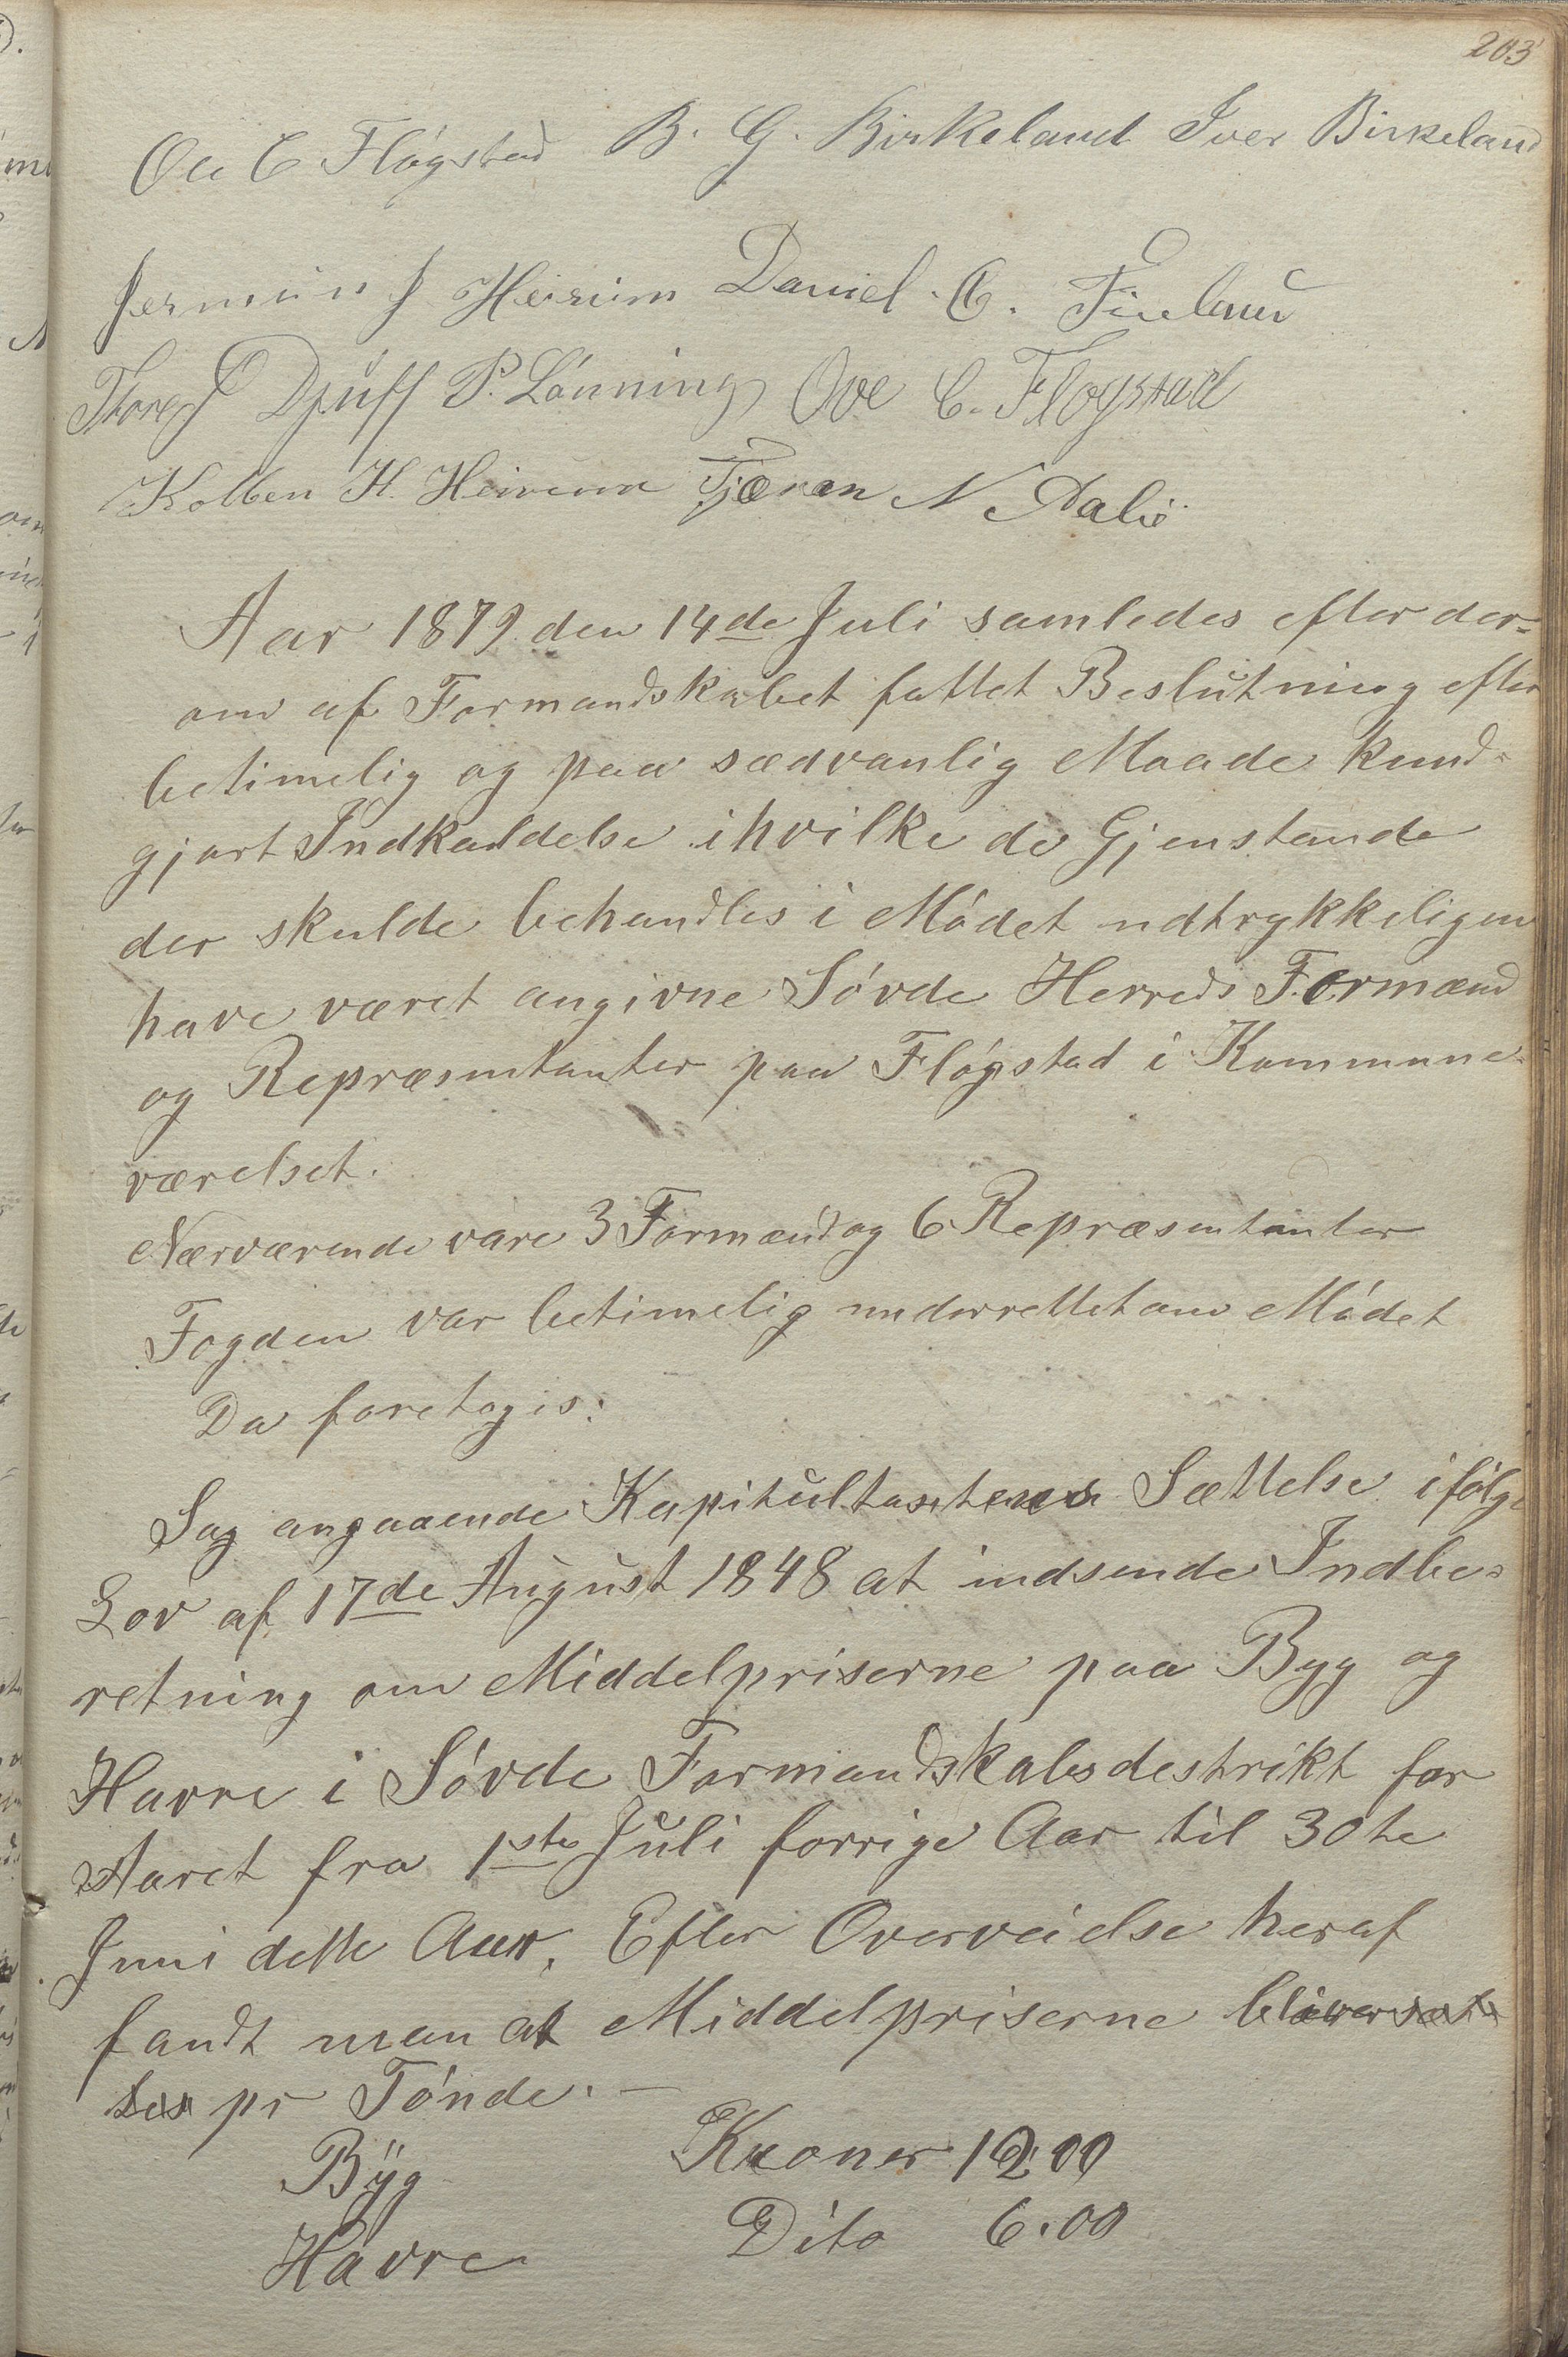 203
Ole C Fløgstad B. G. Birkeland Iver Birkeland
Jermun J Heirim Daniel C.
Thore J Djuff P. Lønning Ove C. Flogstad
Kolben H. Heirem N Dalie
Aar 1879 den 14de Juli samledes efter der=
om af Formandskabet fattet Beslutning efter
betimelig og paa sædvanlig Maade kund=
gjort Indkaldelse ihvilke de Gjenstande
der skulde behandles i Mødet udtrykkeligen
have været angivne Søvde Herreds Formænd
og Repræsentanter paa Fløgstad i Kommune-
værelset.
Nærværende vare 3 Formænd og 6 Repræsentanter
Fogden var betimelig underrettet om Mødet
Da foretoges:
Sag angaaende Kapitultaxtens Sættelse ifølge
Lov af 17de August 1848 at indsende Indbe=
retning om Middelpriserne paa Byg og
Havre i Søvde Formandskabsdestrikt for
Aaret fra 1ste Juli forrige Aar til 30te
Juni dette Aar. Efter Overveielse heraf
fandt man at Middelpriserne bliver sæt
tes pr Tønde. —
Byg Kroner 12.00
Havre Dito 6.00